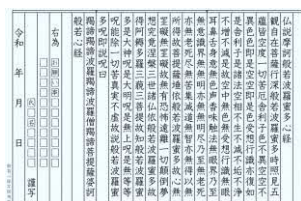 仏説摩訶般若波羅蜜多心経
観自在菩薩行深般若波羅蜜多時照見五
蘊皆空度一切苦厄舎利子色不異空空不
異色色即是空空即是色受想行識亦復如
是舎利子是諸法空相不生不滅不垢不浄
不増不減是故空中無色無受想行識無眼
耳鼻舌身意無色声香味触法無眼界乃至
無意識界無無明亦無無明尽乃至無老死
亦無老死尽無苦集滅道無智亦無得以無
所得故菩提薩埵依般若波羅蜜多故心無
罣礙無罣礙故無有恐怖遠離一切顛倒夢
想究竟涅槃三世諸仏依般若波羅蜜多故
得阿耨多羅三藐三菩提故知般若波羅蜜
多是大神呪是大明呪是無上呪是無等等
呪能除一切苦真実不虚故説般若波羅蜜
多呪即説呪曰
羯諦羯諦波羅羯諦波羅僧羯諦菩提薩婆訶
般若心経
右為
令和 年 月 日 謹写